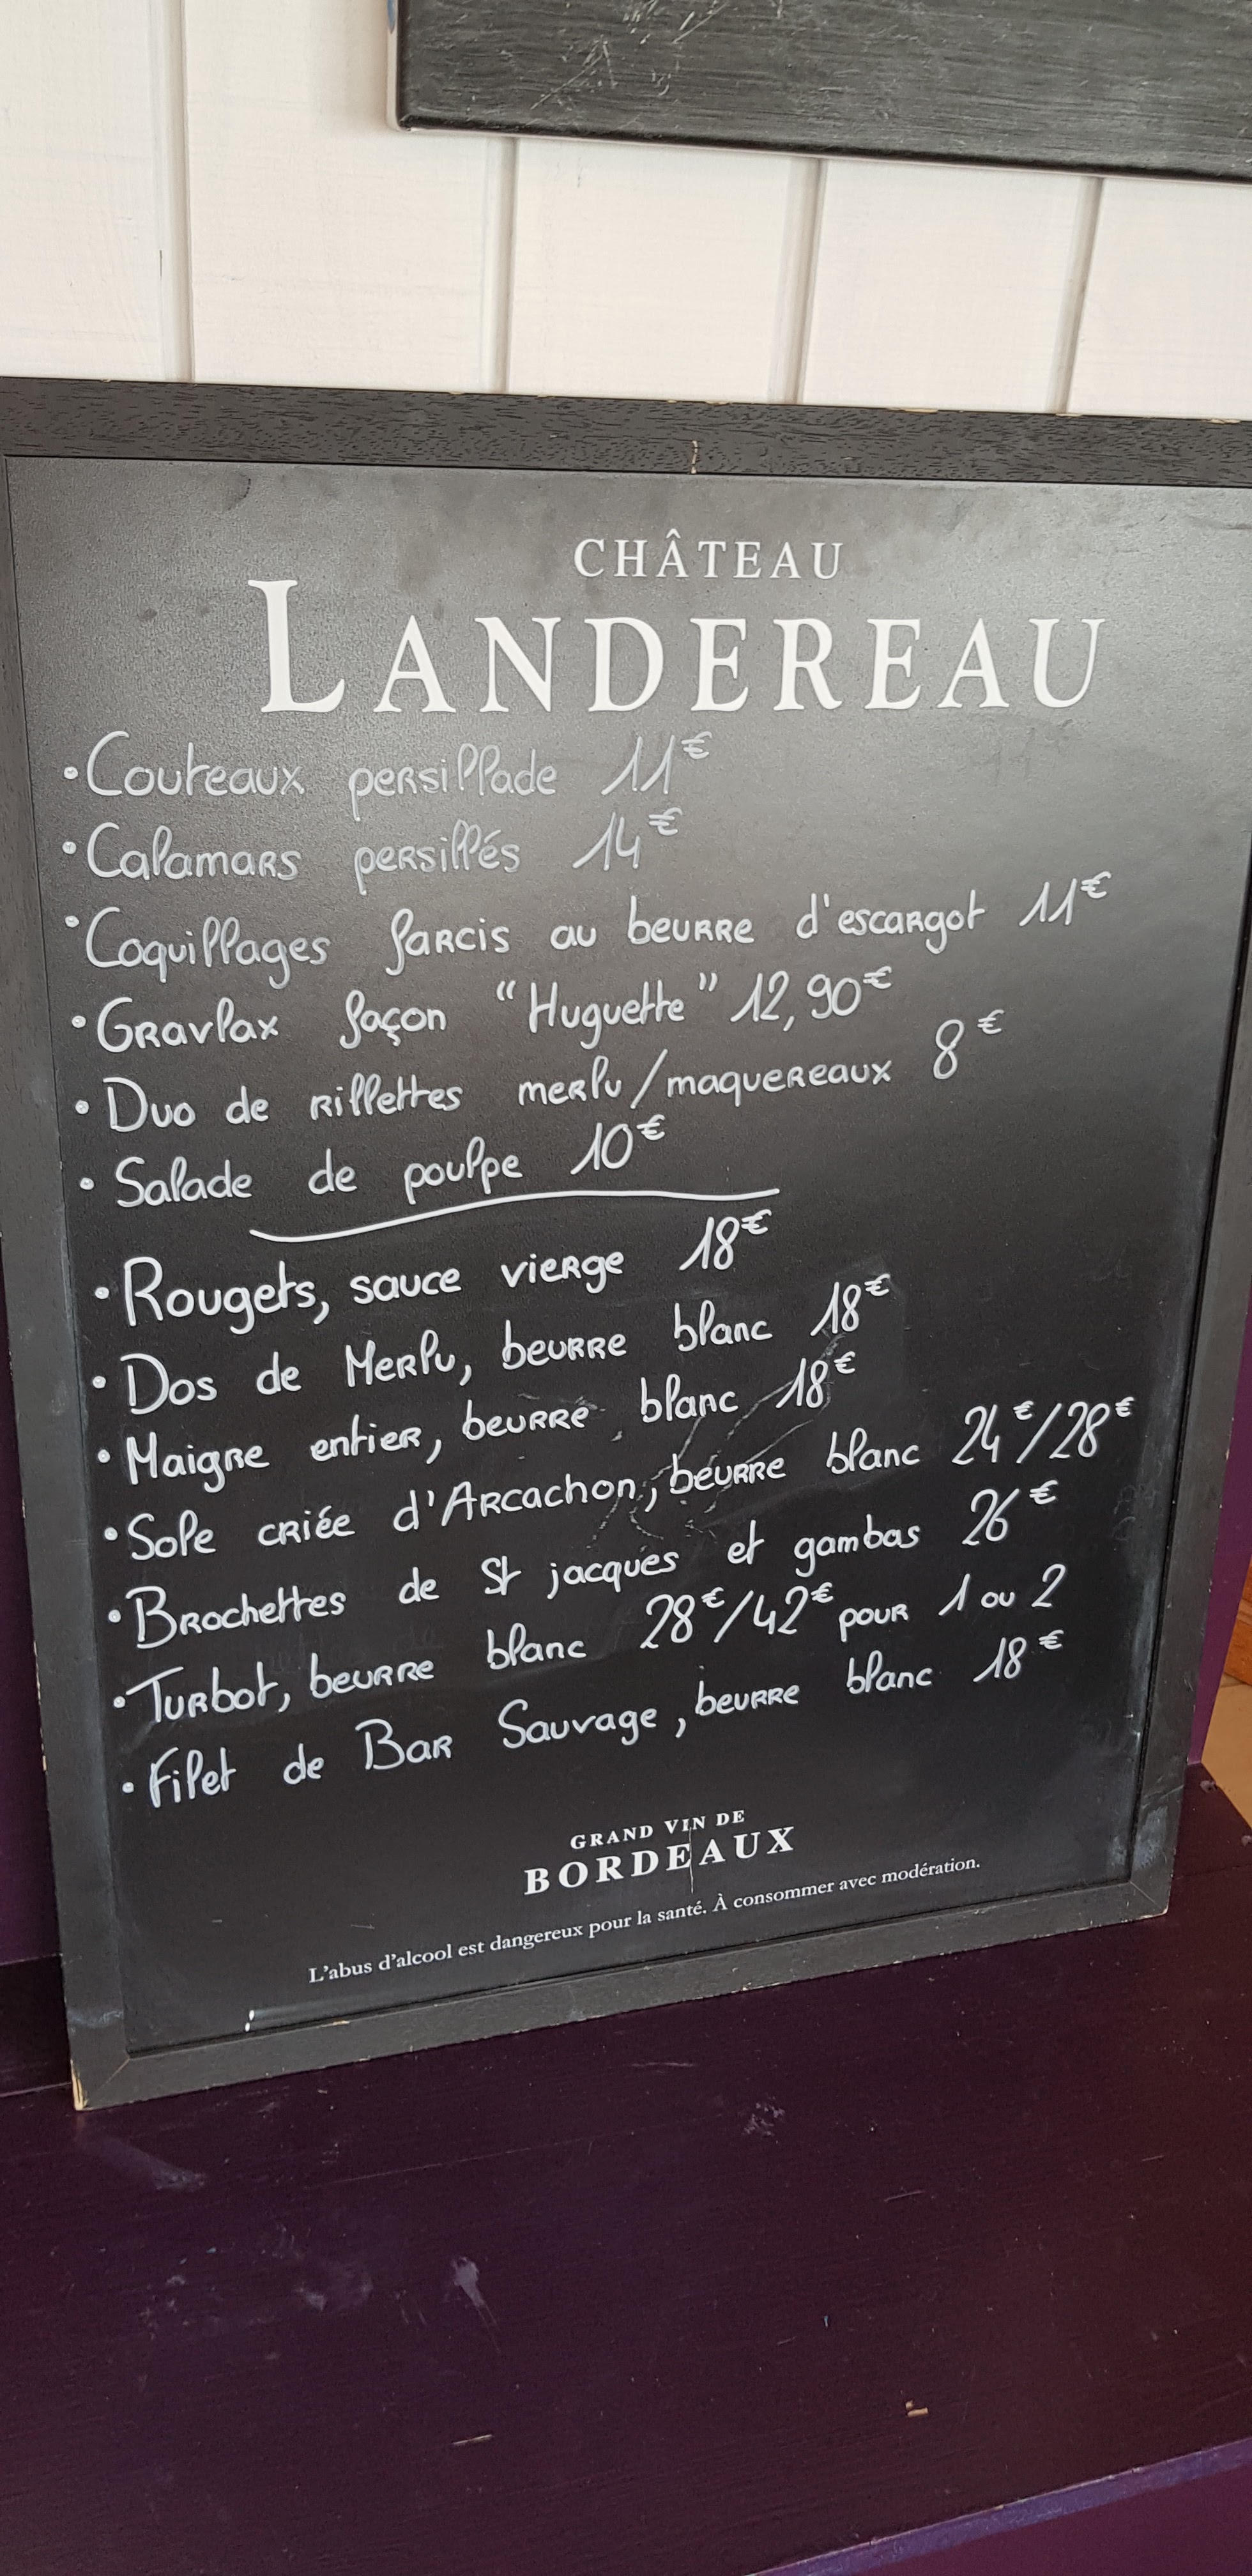 CHÂTEAU
LANDEREAU
• Couteaux persillade 11€
• Calamars persillés 14€
• Coquillages farcis au beurre d'escargot 11€
• Gravlax façon "Huguette" 12,90€
• Duo de rillettes merlu/maquereaux 8€
• Salade de poulpe 10€
• Rougets, sauce vierge 18€
• Dos de Merlu, beurre blanc 18€
• Maigre entier, beurre blanc 18€
• Sole criée d'Arcachon, beurre blanc 24€/28€
• Brochettes de St jacques et gambas 26€
• Turbot, beurre blanc 28€/42€ pour 1 ou 2
• Filet de Bar Sauvage, beurre blanc 18€
GRAND VIN DE
BORDEAUX
L'abus d'alcool est dangereux pour la santé. À consommer avec modération.